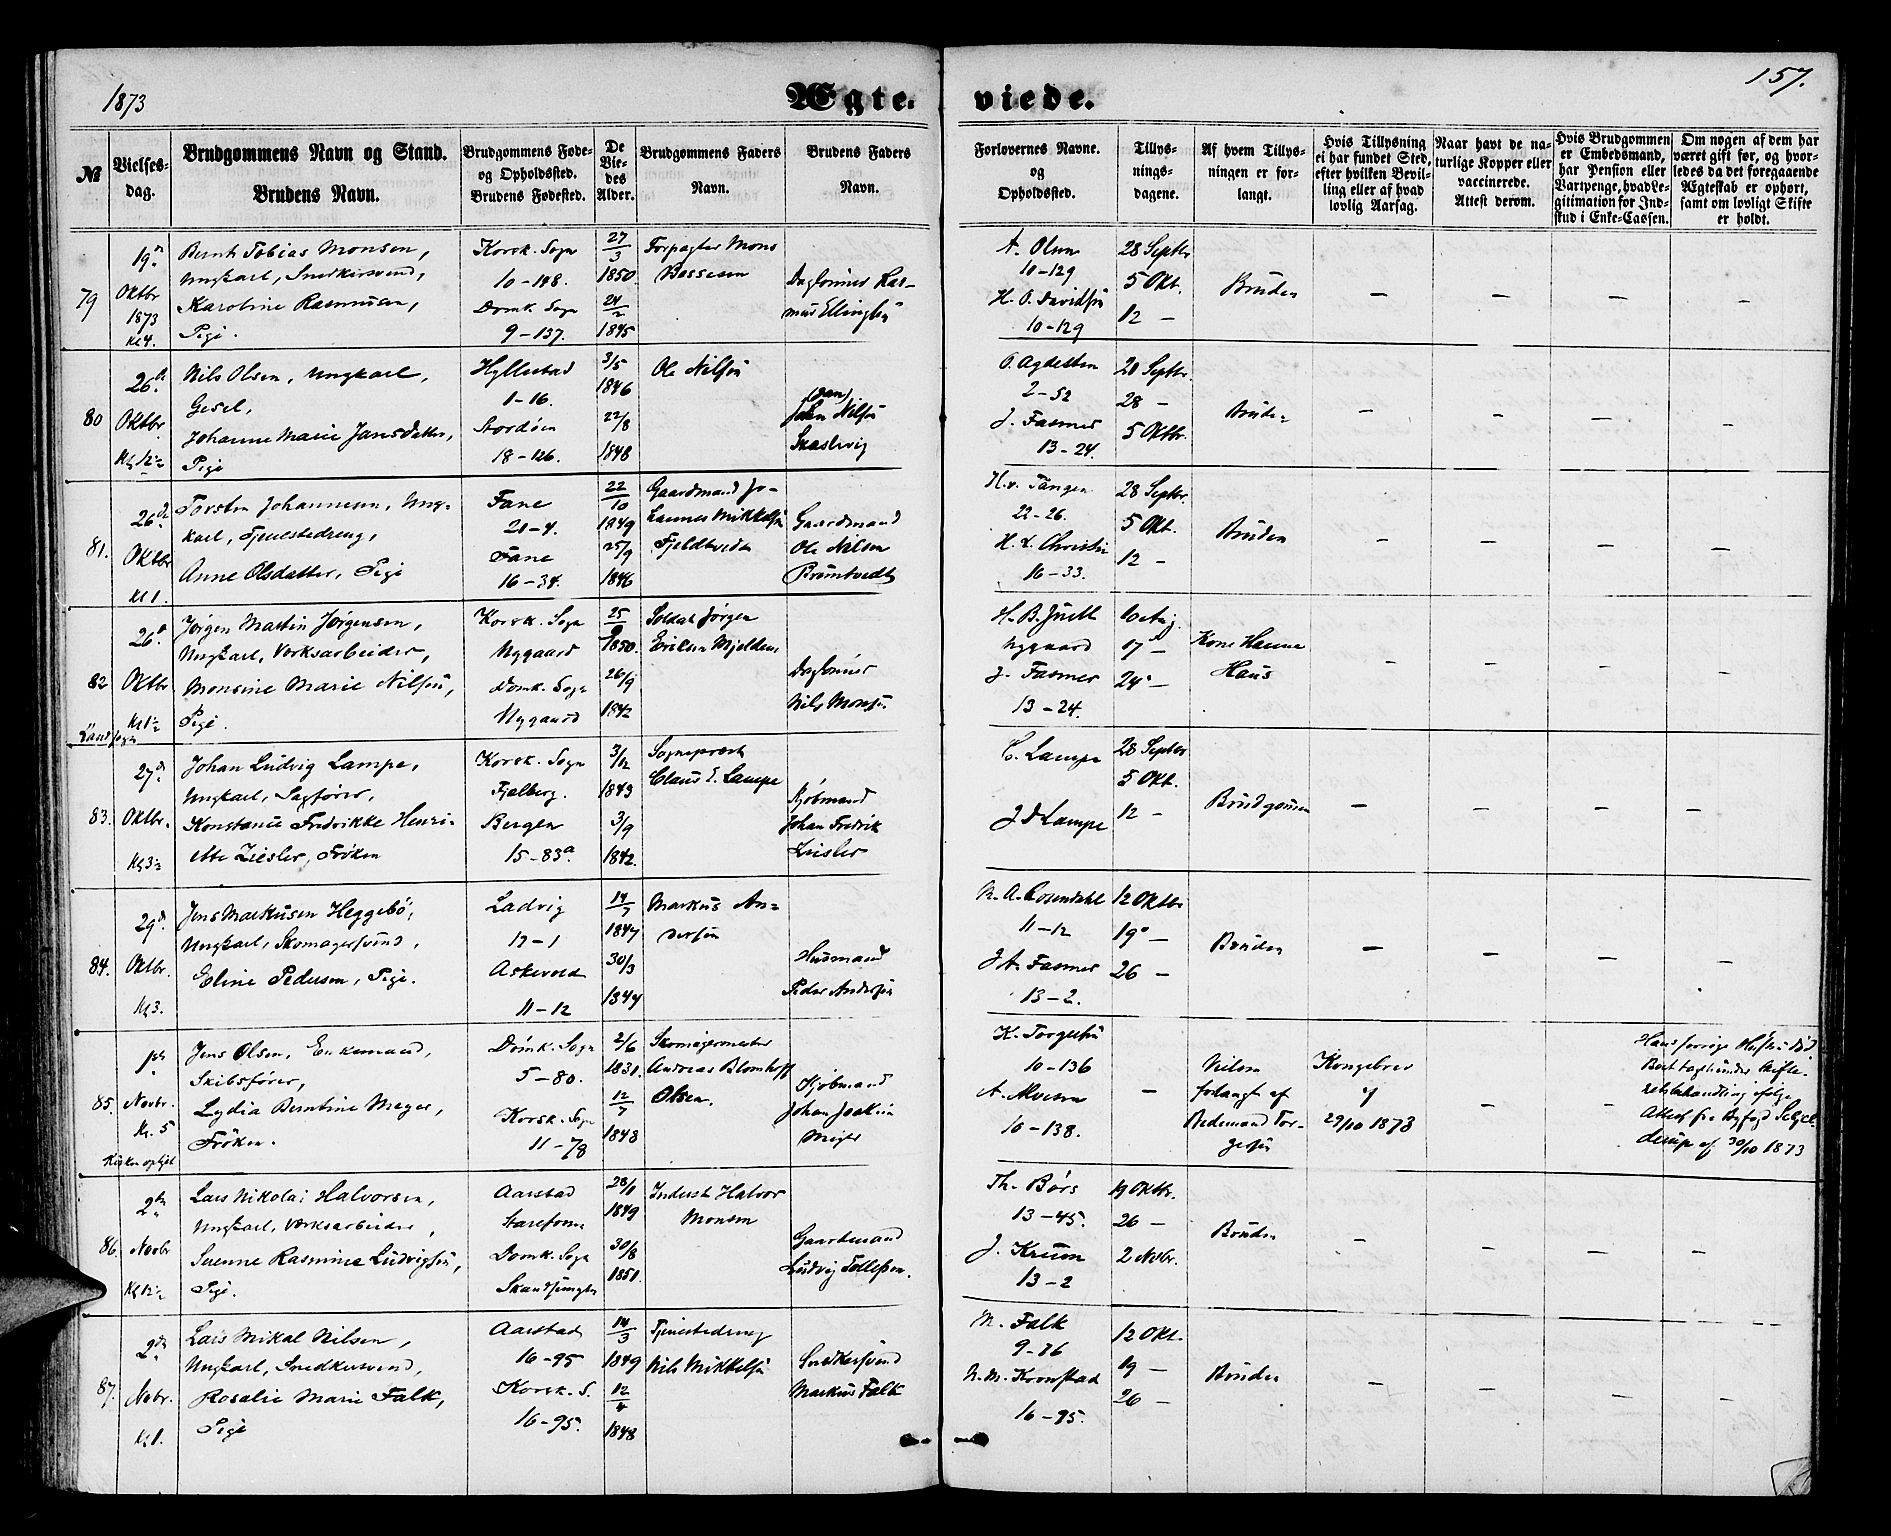 1873
Ægte-
viede.
157.
№
Vielses-
dag.
Brudgommens Navn og Stand.
Brudens Navn.
Brudgommens Føde-
og Opholdssted.
Brudens Fødested.
De
Vie-
des
Alder.
Brudgommens Faders
Navn.
Brudens Faders
Navn.
Forlovernes Navne.
og
Opholdssted.
Tillys-
nings-
dagene.
Af hvem Tillys-
ningen er for-
langt.
Hvis Tillysning
ei har fundet Sted,
efter hvilken Bevil-
ling eller af hvad
lovlig Aarsag.
Naar havt de na-
turlige Kopper eller
vaccinerede.
Attest derom.
Hvis Brudgommen
er Embedsmand,
har Pension eller
Vartpenge, hvad Le-
gitimation for Ind-
skud i Enke-Cassen.
Om nogen af dem har
været gift før, og hvor-
ledes da det foregaaende
Ægteskab er ophørt,
samt om lovligt Skifte
er holdt.
79
19
Oktbr
1873
Kl 4.
Bernt Tobias Monsen,
Ungkarl, Snedkersvend,
Karoline Rasmusen,
Pige.
Korsk. Sogn
10-148.
Domk. Sogn
9-137.
27/3
1850.
24/2
1845
Forpagter Mons
Bessesen
Daglønner Ras-
mus Ellingsen
A. Olsen
10-129
H. O. Davidsen
10-129
28 Septbr
5 Okt.
12 -
Bruden
- - - -
80
26
Oktbr
Kl 12½
Nils Olsen, Ungkarl,
Gesel,
Johanne Marie Jansdatter,
Pige
Hyllestad
1-16.
Stordøen
18-126.
3/5
1846
22/8
1848
Ole Nilsen
(Jan)
John Nilsen
O. Agdesten
2-52
J. Fasmer
13-24.
28 -
5 Oktbr.
Bruden
- - - -
81.
26
Oktbr
Kl 1.
Torsten Johannesen, Ung-
karl, Tjenestedreng,
Anne Olsdatter, Pige
Fane
21-4.
Fane
16-34.
22/10
1849
25/9
1846
Gaardmand Jo-
hannes Mikkelsen
Gaardmand
Ole Nilsen
H. v. Tangen
22-26.
16-33.
28 Septbr.
5 Okt.
12 -
Bruden
- - - -
82
26
Oktbr
Kl 1½
Jørgen Martin Jørgensen,
Ungkarl, Værksarbeider,
Monsine Marie Nilsen,
Pige.
Korsk. Sogn
Nygaard
Domk. Sogn
Nygaard
1850.
26/9
1842
Soldat Jørgen
Eriksen Mjeldem,
Daglønner
Nils Monsen
Nygaard
J. Fasmer
13-24.
17 -
24 -
Kone Hanne
Haus
- - - -
83.
27
Oktbr.
Kl 3½
Johan Ludvig Lampe,
Ungkarl, Sagfører,
Konstance Fredrikke Henri-
ette Ziesler, Frøken
Korsk. Sogn
Fjelberg.
Bergen
15-83a.
3/12
1843
3/9
1842.
Sogneprest
Claus E. Lampe
Kjøbmand
Johan Fredrik
Ziesler
C. Lampe
J D Lampe
28 Septbr
5 Okt.
12 -
Brudgommen
- - - -
84.
29
Oktbr.
Kl 3.
Jens Markusen Heggebø,
Ungkarl, Skomagersvend,
Eline Pedersen, Pige.
Ladvig
12-1
Askevold
11-12
14/7
1847
30/3
1847
Markus An-
dersen
Husmand
Peder Andersen
N. A. Rosendahl
11-12
J A. Fasmer
13-2.
12 Oktbr
19 -
26 -
Bruden
- - - -
85.
1ste
Novbr.
Kl. 5
Kirken oplyst
Jens Olsen, Enkemand,
Skibsfører,
Lydia Berntine Meyer,
Frøken.
Domk. Sogn
5-80.
Korsk. Sogn
11-78
2/6
1831.
12/7
1843
Skomagermester
Andreas Blomhoff
Olsen.
Kjøbmand
Johan Joakim
Meyer
K. Torgersen
10-136
A. Alvesen
10-138.
-
Vielsen
forlangt af
Bedemand Tor-
gersen
Kongebrev
af
29/10 1873
- -
Hans forrige Hustru død
Boet tagt under Skifte-
retsbehandling ifølge
Attest fra Byfoged
af 30/10 1873
86.
2den
Novbr
Kl 12½
Lars Nikolai Halvorsen,
Ungkarl, Værksarbeider,
Severine Rasmine Ludvigsen,
Pige.
Aarstad
Domk. Sogn
28/1
1849
30/8
1851.
Inderst Halvor
Monsen
Gaardmand
Ludvig Tollefsen.
Th. Børs
13-45.
J. Krum
13-2
19 Oktbr.
26 -
2 Novbr.
Bruden
- - - -
87.
2den
Novbr.
Kl 1.
Lars Mikal Nilsen,
Ungkarl, Snedkersvend,
Rosalie Marie Falk,
Pige
Aarstad
16-95
Korsk. S.
16-95.
14/3
1849
12/4
1848
Tjenestedreng
Nils Mikkelsen
Snedkersvend
Markus Falk
N. Falk
9-86
N. M. Kronstad
16-95.
12 Okt.
19 -
26 -
Bruden
- - - -